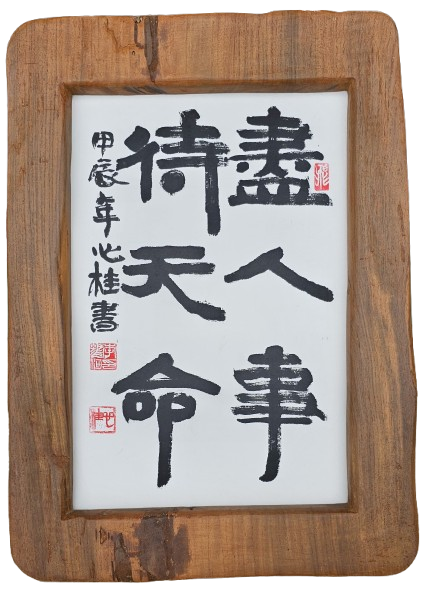 盡人事
待天命
甲辰年心桂書